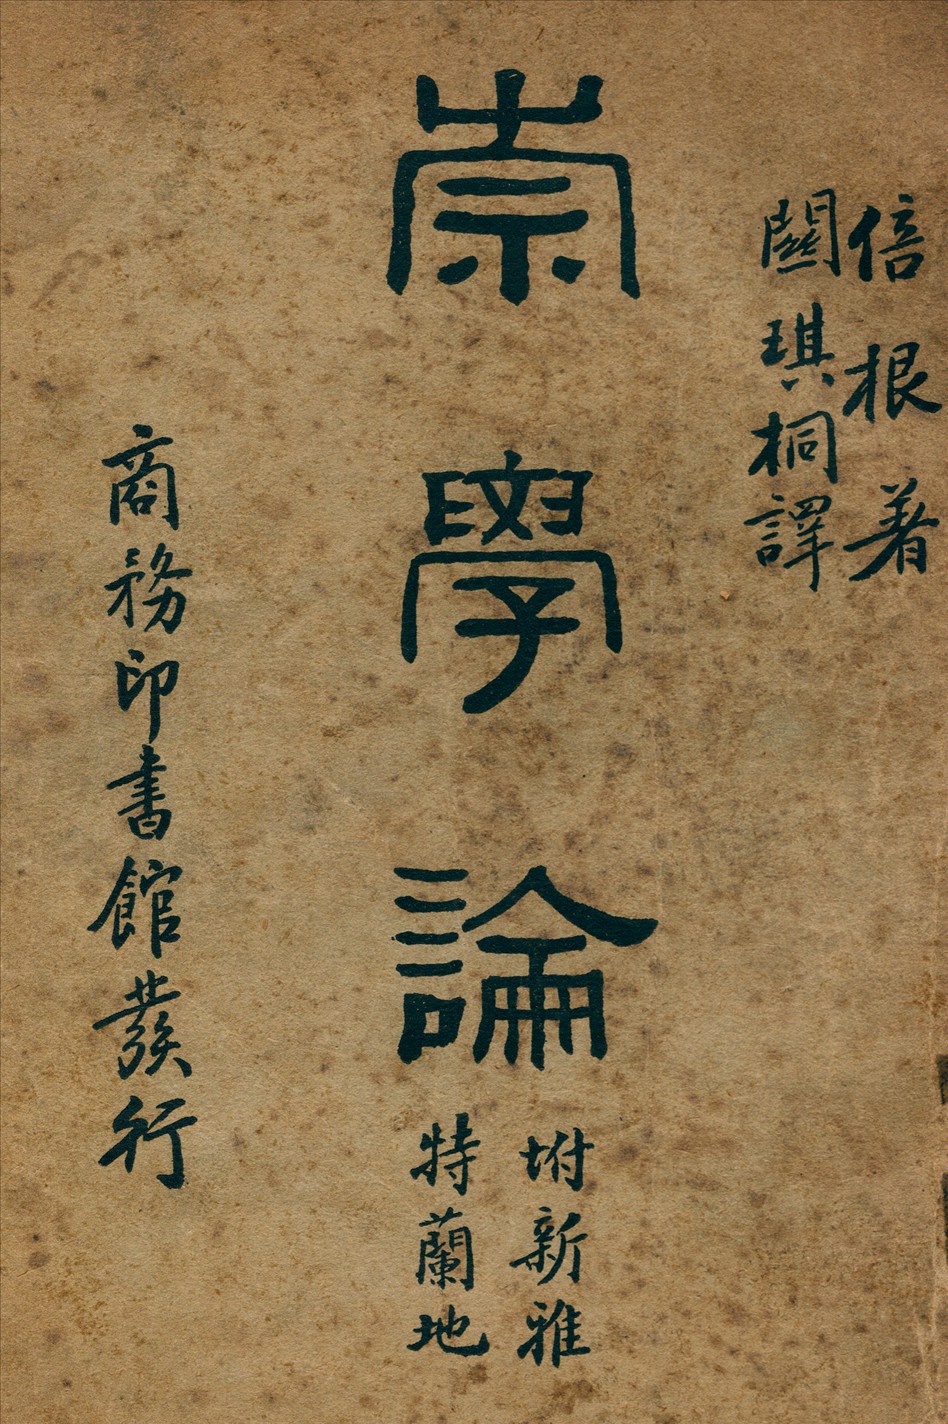 倍根著
關琪桐譯
崇學論
坿新雅
特蘭地
商務印書館發行